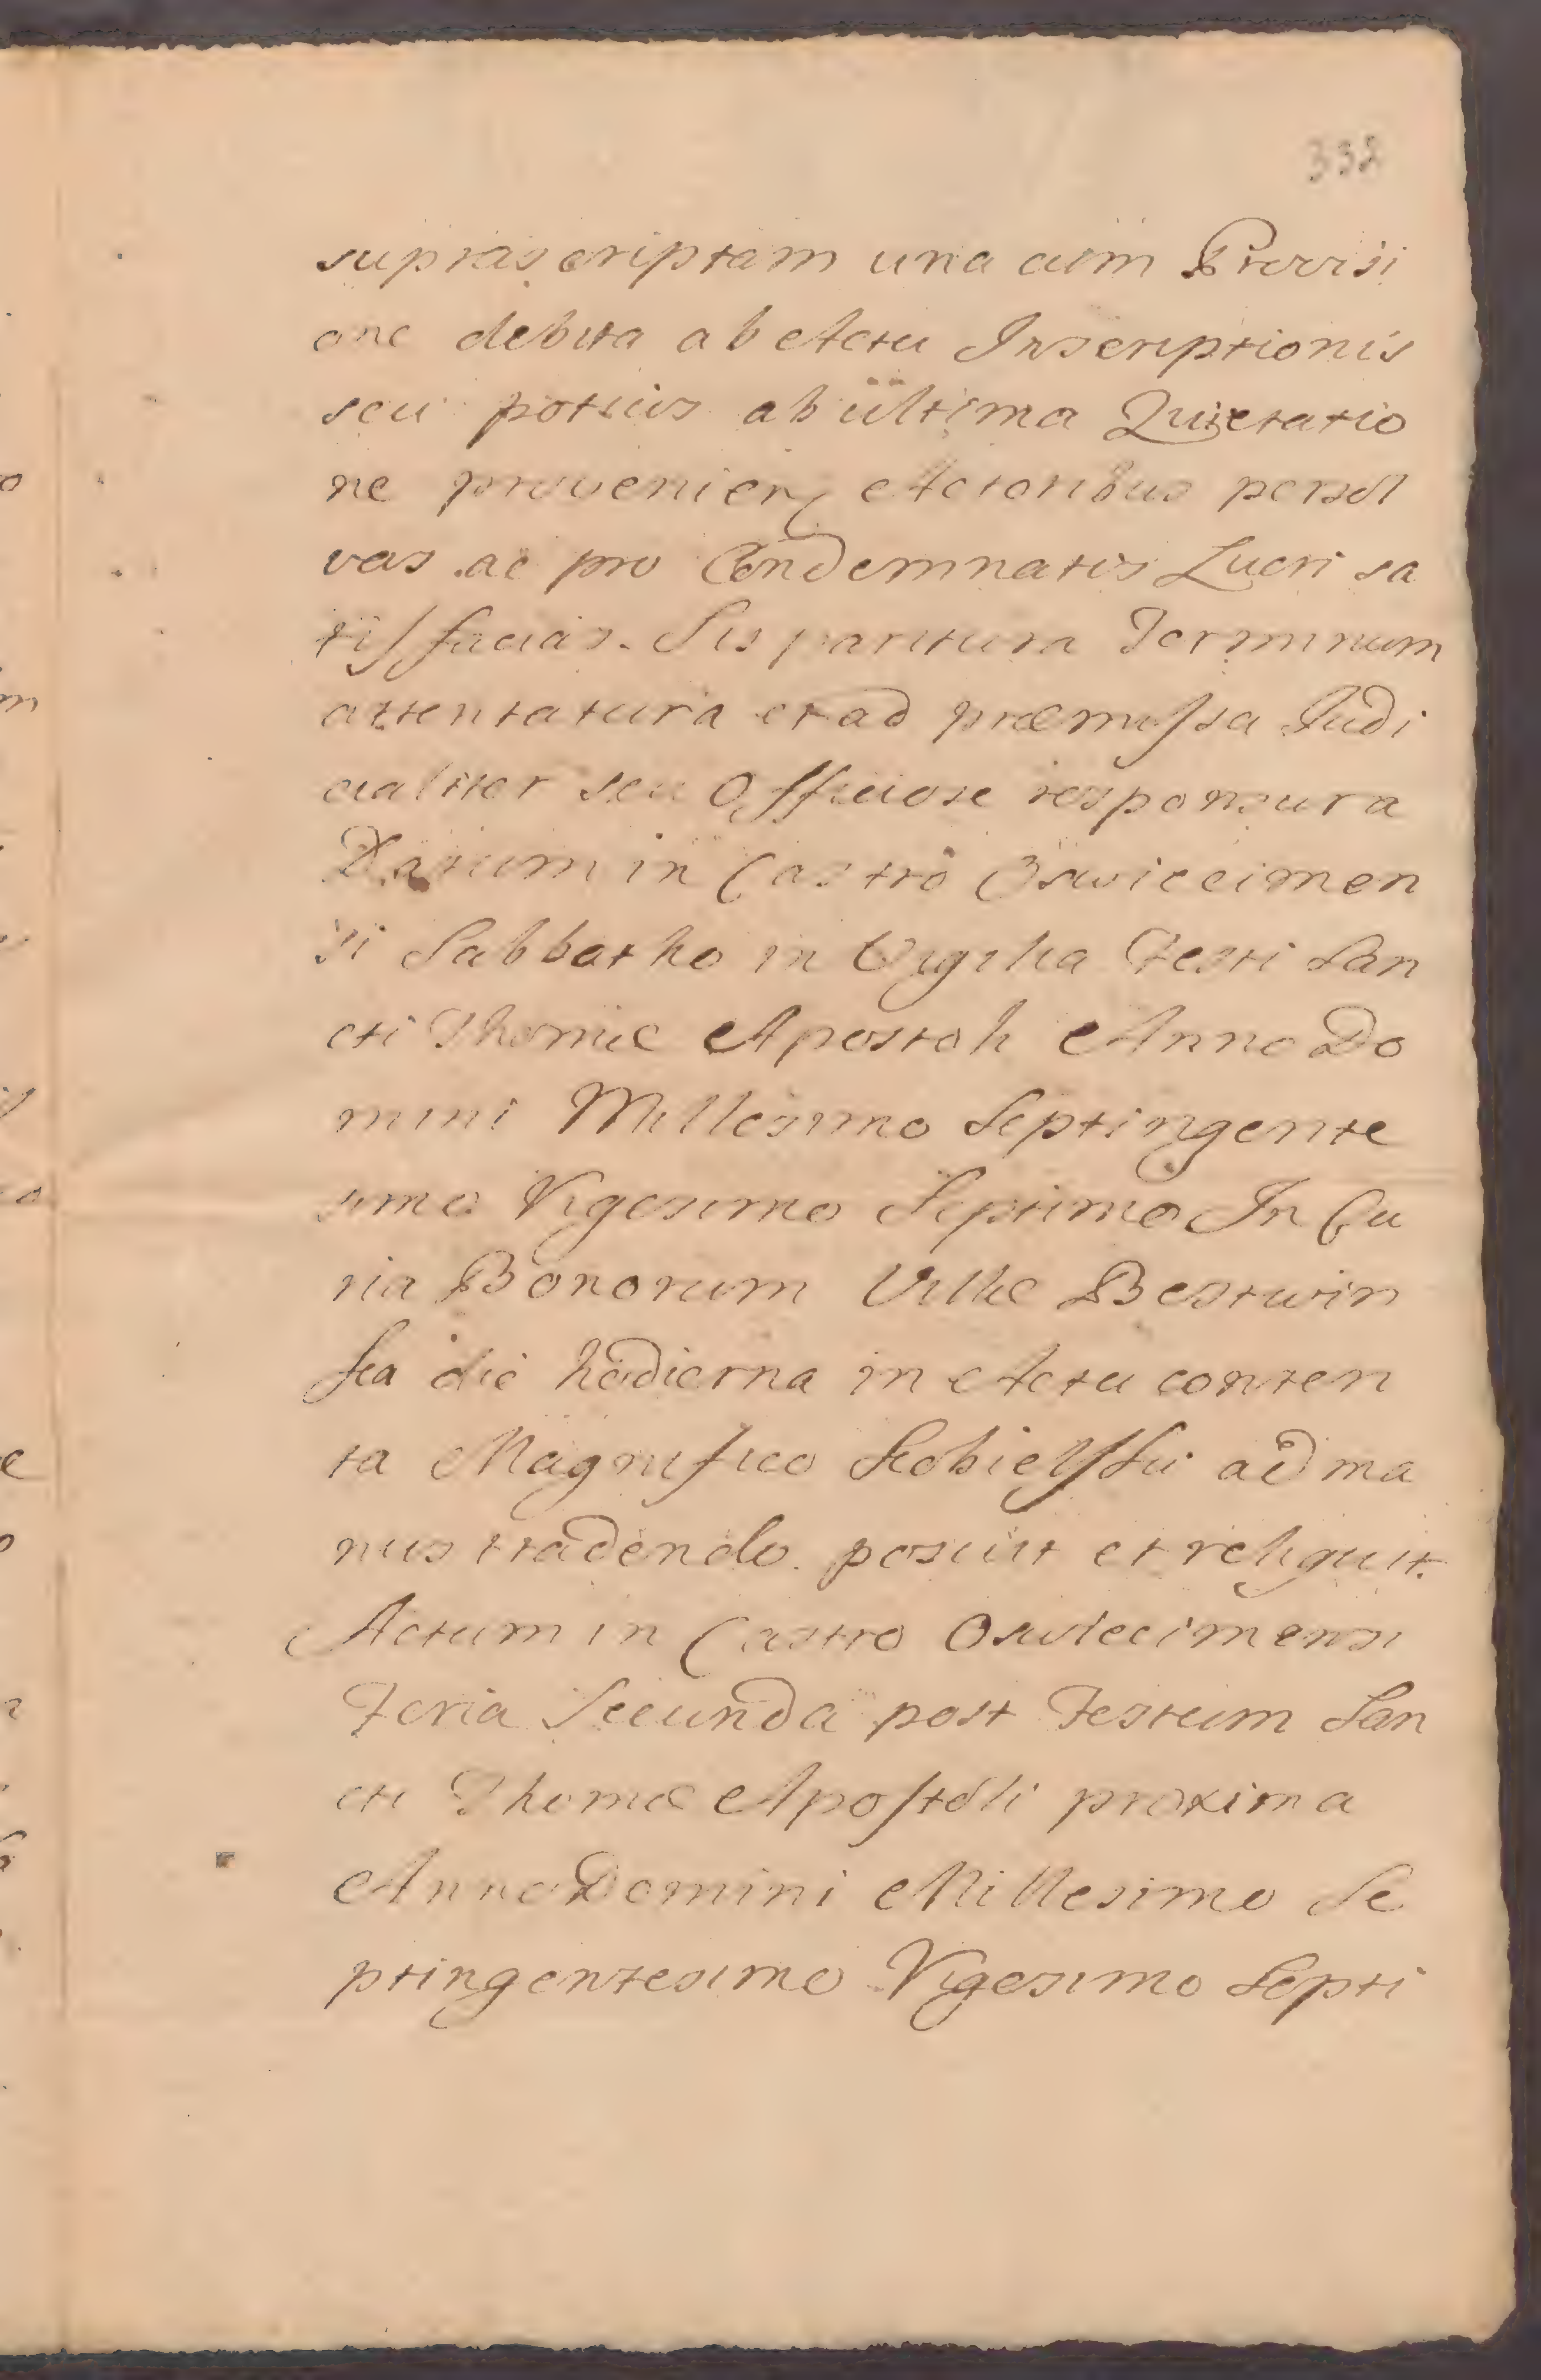 332
supras criptam una cum Provisi
one debita ab Actu Inscriptionis
seu potius ab ültima Quietatio
ne provenien Actoribus persol
vas ac pro Condemnatis Lucri sa
tisfacias. Sis paritura Terminum
attentatura et ad præmissa Judi
cialiter seu Officiose responsura
Datum in Castro Oswiecimen
si Sabbatho in Vigilia Festi San
cti Thomæ Apostoli Anno Do
mini Millesimo Septingente
simo Vigesimo Septimo In Cu
ria Bonorum Villæ Bestwin
ska die hodierna in Actu conten
ta Magnifico ad ma
nus tradendo posuit et reliquit.
Actum in Castro Oswiecimensi
Feria Secunda post Festum San
cti Thomæ Apostoli proxima
Anno Domini Millesimo Se
ptingentesimo Vigesimo Septi